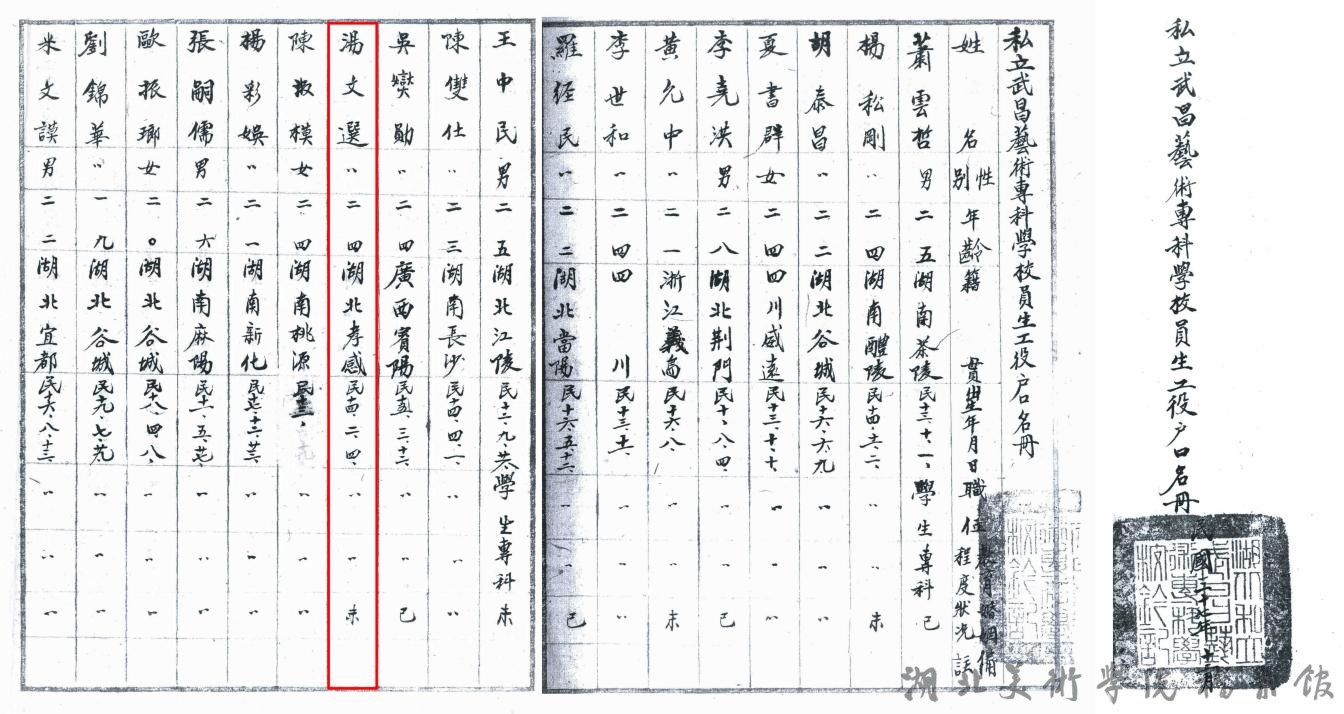 私立武昌藝術專科學校員生工役户口名冊
民國三十七年十二月
私立武昌藝術專科學校員生工役户口名冊
姓名 性别 年齡 籍貫 出生年月日 職位 教育程度 婚姻狀况 備註
蕭雲哲 男 二五 湖南茶陵 民十三、十一、 學生 專科 已
楊松剛 〃 二四 湖南醴陵 民十四、十二、二 〃 〃 未
胡泰昌 〃 二二 湖北谷城 民十六、六、九 〃 〃 〃
夏書群 女 二四 四川威遠 民十三、十、十 〃 〃 〃
李堯洪 男 二八 湖北荆門 民十、八、四、 〃 〃 已
黄允中 〃 二一 浙江義烏 民十六、八、 〃 〃 未
李世和 〃 二四 四川 民十三、十二、 〃 〃 〃
羅經民 〃 二二 湖北當陽 民十六、五、十二、 〃 〃 已
王中民 男 二五 湖北江陵 民十二、九、廿八、 學生 專科 未
陳雙仕 〃 二三 湖南長沙 民十四、四、二、 〃 〃 〃
吳爕勛 〃 二四 廣西賓陽 民十五、三、十二、 〃 〃 已
湯文選 〃 二四 湖北孝感 民十四、二、四、 〃 〃 未
陳淑模 女 二四 湖南桃源 民十三、 〃 〃 〃
楊彩娛 〃 二一 湖南新化 民十七、十二、廿三、 〃 〃 〃
張嗣儒 男 二六 湖南麻陽 民十一、五、廿七、 〃 〃 〃
歐振瑯 女 二〇 湖北谷城 民十八、四、八、 〃 〃 〃
劉錦華 〃 一九 湖北谷城 民十九、七、廿九、 〃 〃 〃
米文謨 男 二二 湖北宜都 民十六、八、十三、 〃 〃 〃
湖北美術學院檔案館